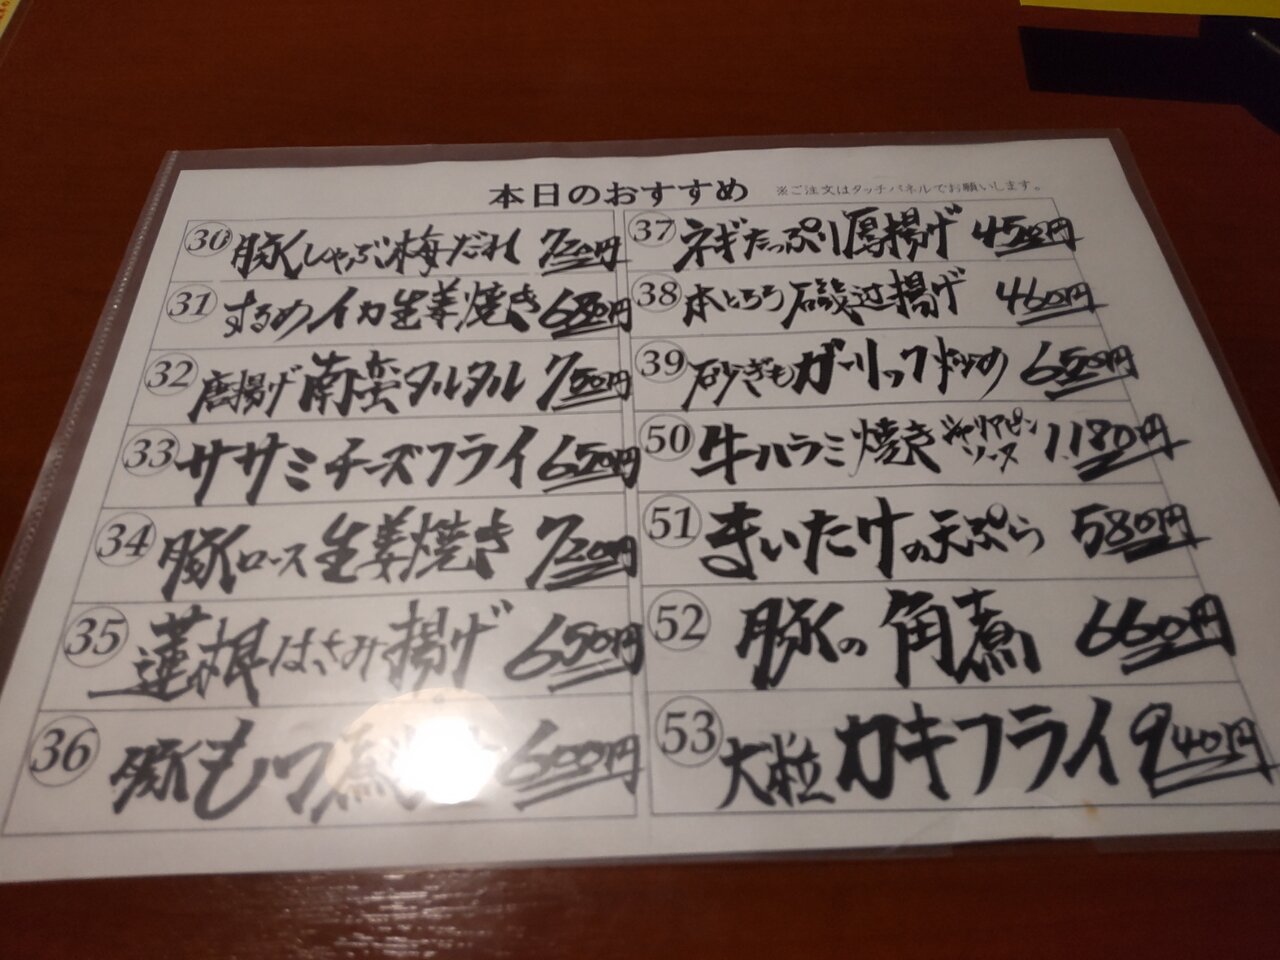 本日のおすすめ
※ご注文はタッチパネルでお願いします。
30 豚しゃぶ梅だれ 720円
31 するめイカ生姜焼き 680円
32 唐揚げ南蛮タルタル 700円
33 ササミチーズフライ 650円
34 豚ロース生姜焼き 720円
35 蓮根はさみ揚げ 650円
36 豚もつ煮 600円
37 ネギたっぷり厚揚げ 450円
38 本とろろ磯辺揚げ 460円
39 砂ぎもガーリック炒め 650円
50 牛ハラミ焼きジャリアピンソース 1.180円
51 まいたけの天ぷら 580円
52 豚の角煮 660円
53 大粒カキフライ 940円